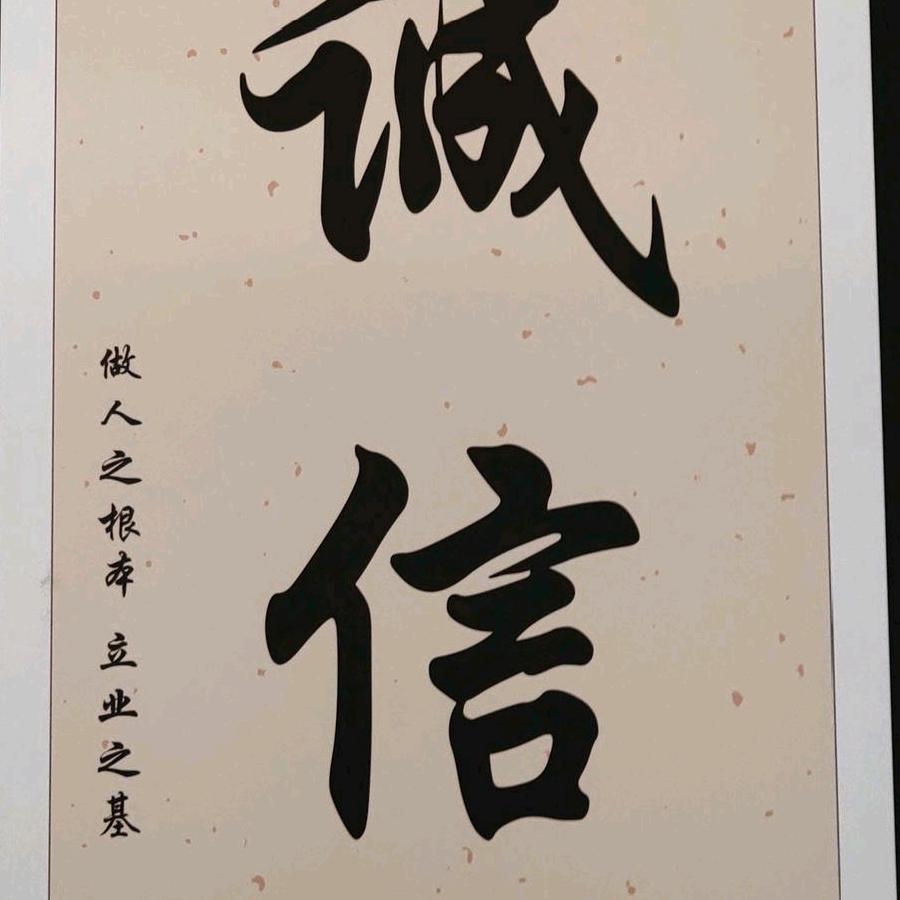 诚信
做人之根本 立业之基